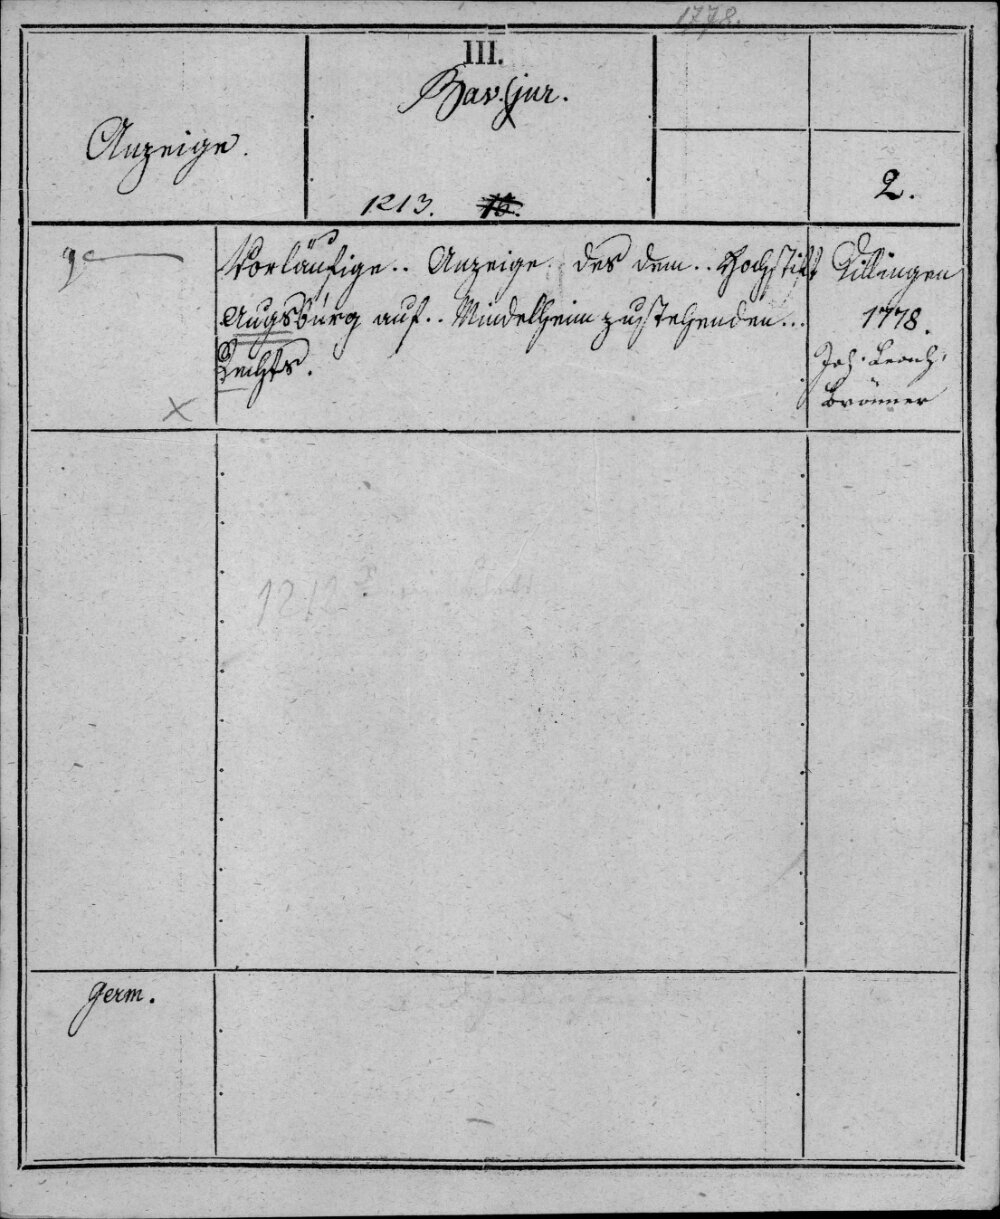 1778.
III.
Bav. jur.
Anzeige.
1213.
2.
Vorläufige.. Anzeige des dem.. Hochstift
Augsburg auf.. Mindelheim zustehenden...
Rechts.
Dillingen
1778.
Joh. Leonh.
Brönner
Germ.